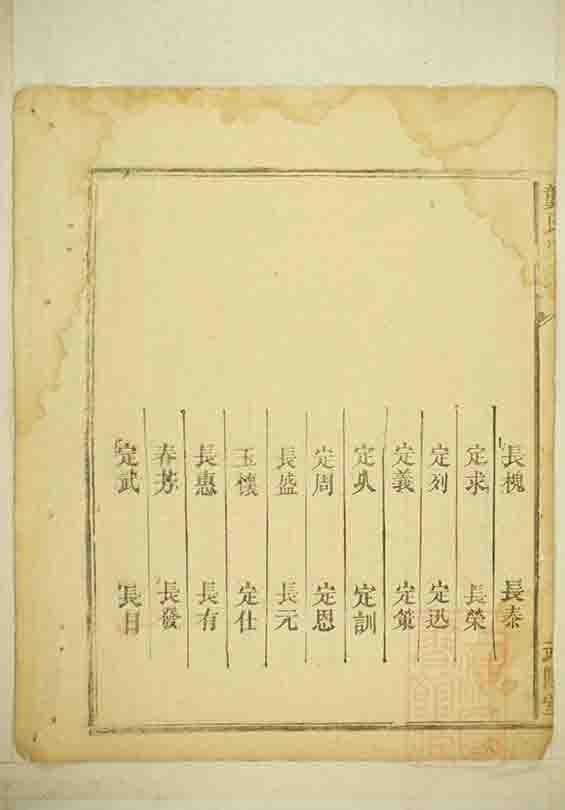 長槐 長泰
定求 長榮
定列 定迅
定義 定策
定 定訓
定周 定恩
長盛 長元
玉懷 定仕
長惠 長有
春芳 長發
定武 長目
龔氏
武陵堂